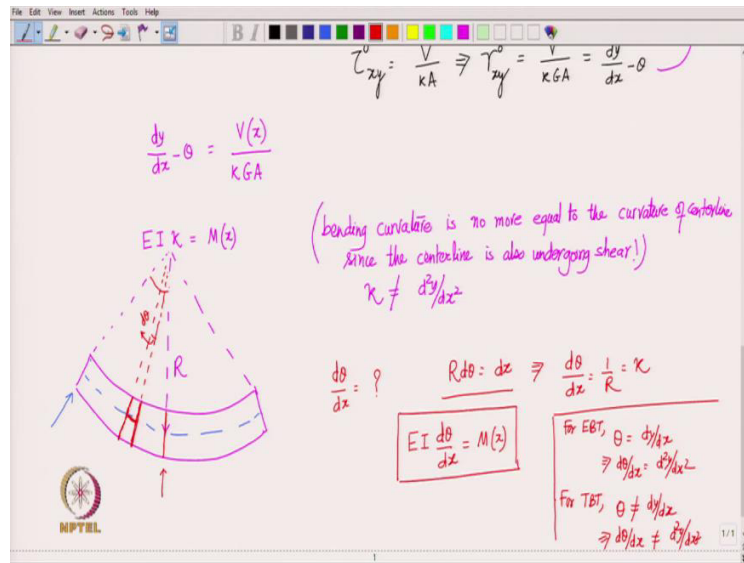 File Edit View Insert Actions Tools Help
B I
τ⁰xy = V/κA ⇒ γ⁰xy = V/κGA = dy/dx - θ
dy/dx - θ = V(x)/κGA
EI κ = M(x)
(bending curvature is no more equal to the curvature of centerline
since the centerline is also undergoing shear!)
κ ≠ d²y/dx²
dθ
R
dθ/dx = ?
Rdθ = dx ⇒ dθ/dx = 1/R = κ
EI dθ/dx = M(x)
For EBT, θ = dy/dx
⇒ dθ/dx = d²y/dx²
For TBT, θ ≠ dy/dx
⇒ dθ/dx ≠ d²y/dx²
NPTEL
1/1
1